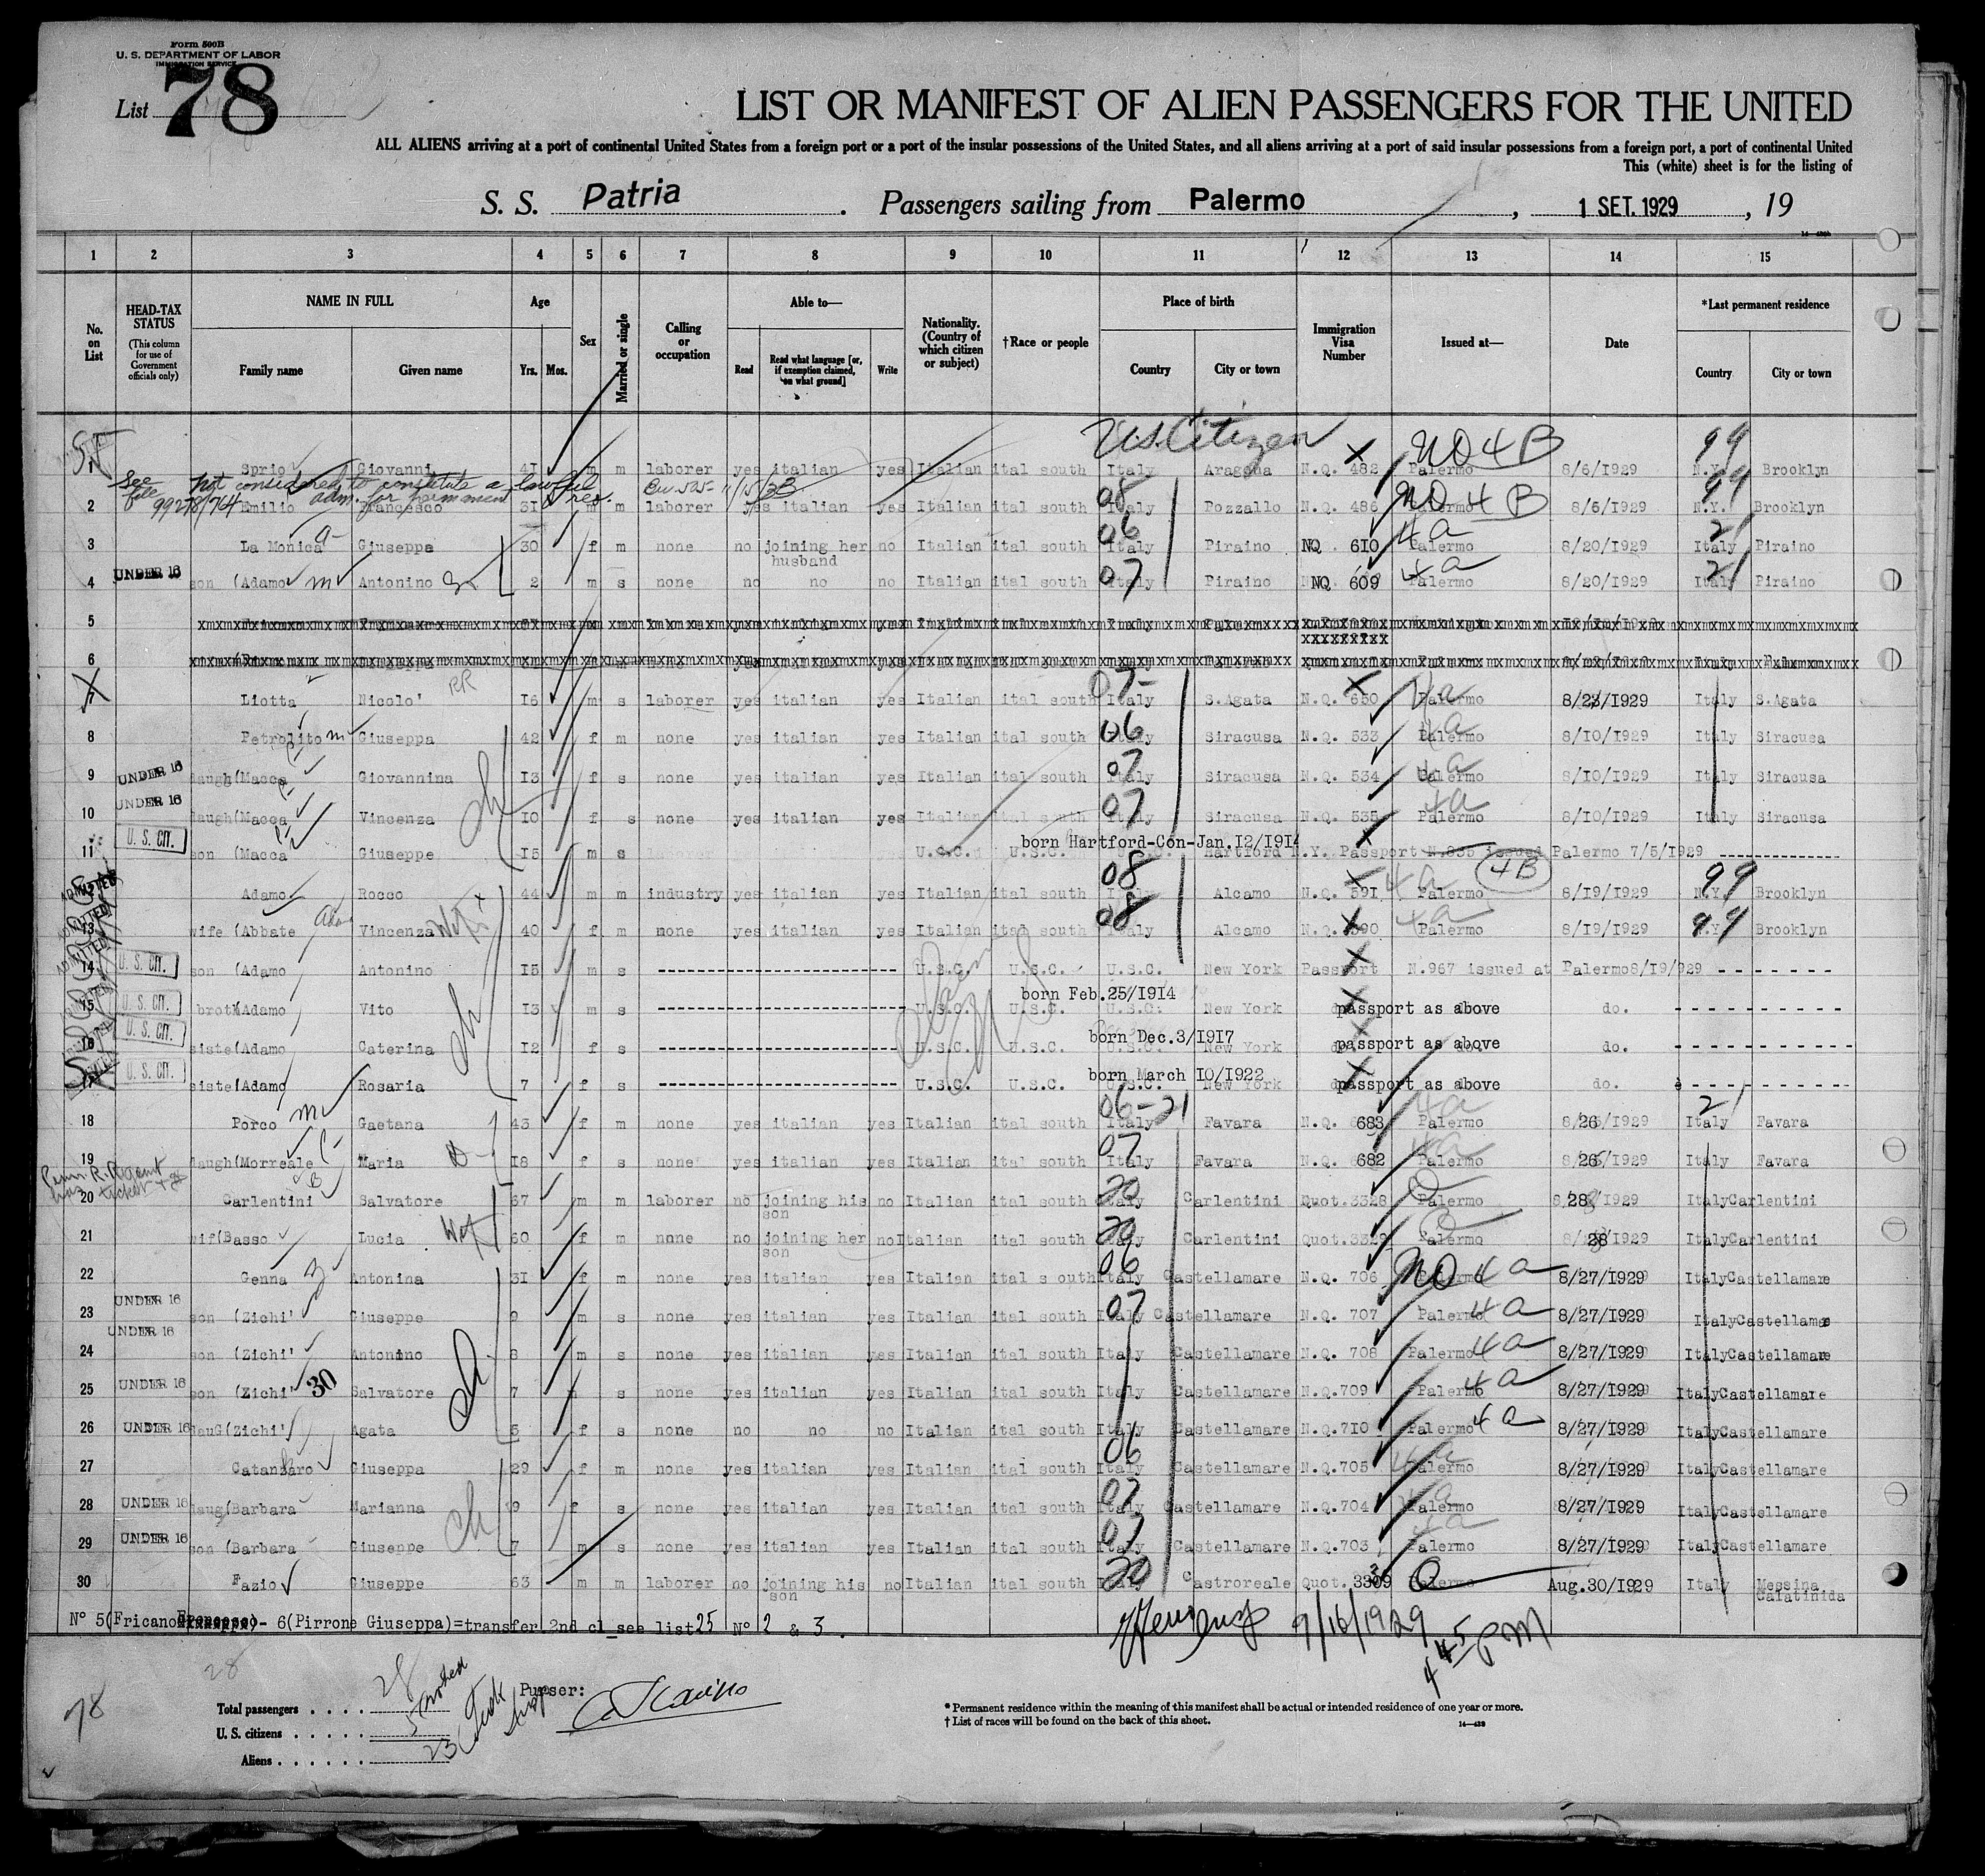 Form 500B
U. S. DEPARTMENT OF LABOR
IMMIGRATION SERVICE
List 78
LIST OR MANIFEST OF ALIEN PASSENGERS FOR THE UNITED
ALL ALIENS arriving at a port of continental United States from a foreign port or a port of the insular possessions of the United States, and all aliens arriving at a port of said insular possessions from a foreign port, a port of continental United
This (white) sheet is for the listing of
S. S. Patria . Passengers sailing from Palermo , 1 SET. 1929 , 19
1 2 3 4 5 6 7 8 9 10 11 12 13 14 15
No. on List
HEAD-TAX STATUS (This column for use of Government officials only)
NAME IN FULL Family name Given name
Age Yrs. Mos.
Sex
Married or single
Calling or occupation
Able to— Read Read what language [or, if exemption claimed, on what ground] Write
Nationality. (Country of which citizen or subject)
†Race or people
Place of birth Country City or town
Immigration Visa Number
Issued at—
Date
*Last permanent residence Country City or town
U.S. Citizen NO 4B 99
1 Sprio Giovanni 41 m m laborer yes italian yes Italian ital south Italy Aragona N.Q. 482 Palermo 8/6/1929 N.Y. Brooklyn
See file 99278/74 not considered to constitute a lawful adm. for permanent res.
2 Emilio Francesco 31 m m laborer yes italian yes Italian ital south 08 Italy Pozzallo N.Q. 486 Palermo NO 4B 8/6/1929 99 N.Y. Brooklyn
3 La Monica Giuseppa 30 f m none no joining her husband no Italian ital south 06 Italy Piraino NQ 610 Palermo 4a 8/20/1929 21 Italy Piraino
4 UNDER 16 son (Adamo Antonino 2 m s none no no no Italian ital south 07 Italy Piraino NQ 609 Palermo 4a 8/20/1929 21 Italy Piraino
5
6
7 Liotta Nicolo' RR 16 m s laborer yes italian yes Italian ital south 07 Italy S.Agata N.Q. 650 Palermo 4a 8/23/1929 Italy S.Agata
8 Petrolito Giuseppa 42 f m none yes italian yes Italian ital south 06 Italy Siracusa N.Q. 533 Palermo 4a 8/10/1929 Italy Siracusa
9 UNDER 16 daugh(Macca Giovannina 13 f s none yes italian yes Italian ital south 07 Italy Siracusa N.Q. 534 Palermo 4a 8/10/1929 Italy Siracusa
10 UNDER 16 daugh(Macca Vincenza 10 f s none yes italian yes Italian ital south 07 Italy Siracusa N.Q. 535 Palermo 4a 8/10/1929 Italy Siracusa
born Hartford-Con-Jan.12/1914
11 U. S. CIT. son (Macca Giuseppe 15 m s U.S.C. U.S.C. U.S.C. Hartford N.Y. Passport N.835 issued Palermo 7/5/1929
12 ADMITTED Adamo Rocco 44 m m industry yes italian yes Italian ital south 08 Italy Alcamo N.Q. 591 4a Palermo 4B 8/19/1929 99 N.Y. Brooklyn
13 ADMITTED wife (Abbate Vincenza 40 f m none yes italian yes Italian ital south 08 Italy Alcamo N.Q. 590 4a Palermo 8/19/1929 99 N.Y. Brooklyn
14 ADMITTED U. S. CIT. son (Adamo Antonino 15 m s U.S.C. U.S.C. U.S.C. New York Passport N.967 issued at Palermo 8/19/929
born Feb.25/1914
15 U. S. CIT. broth(Adamo Vito 13 m s U.S.C. U.S.C. U.S.C. New York passport as above do.
born Dec.3/1917
16 U. S. CIT. siste(Adamo Caterina 12 f s U.S.C. U.S.C. U.S.C. New York passport as above do.
born March 10/1922
17 U. S. CIT. siste(Adamo Rosaria 7 f s U.S.C. U.S.C. U.S.C. New York passport as above do.
18 Porco Gaetana 43 f m none yes italian yes Italian ital south 06-21 Italy Favara N.Q. 683 Palermo 4a 8/26/1929 21 Italy Favara
19 daugh(Morreale Maria 18 f s none yes italian yes Italian ital south 07 Italy Favara N.Q. 682 Palermo 4a 8/26/1929 Italy Favara
Penn R.R. agent has ticket
20 Carlentini Salvatore 67 m m laborer no joining his son no Italian ital south 20 Italy Carlentini Quot.3328 Palermo 8/28/1929 Italy Carlentini
21 wif(Basso Lucia 60 f m none no joining her son no Italian ital south 20 Italy Carlentini Quot.3329 Palermo 8/28/1929 Italy Carlentini
22 Genna Antonina 31 f m none yes italian yes Italian ital south 06 Italy Castellamare N.Q. 706 NO Palermo 4a 8/27/1929 Italy Castellamare
23 UNDER 16 son (Zichi' Giuseppe 9 m s none yes italian yes Italian ital south 07 Italy Castellamare N.Q. 707 Palermo 4a 8/27/1929 Italy Castellamare
24 UNDER 16 son (Zichi' Antonino 8 m s none yes italian yes Italian ital south Italy Castellamare N.Q. 708 Palermo 4a 8/27/1929 Italy Castellamare
25 UNDER 16 son (Zichi' 30 Salvatore 7 m s none yes italian yes Italian ital south Italy Castellamare N.Q.709 Palermo 4a 8/27/1929 Italy Castellamare
26 UNDER 16 dauG(Zichi' Agata 5 f s none no no no Italian ital south Italy Castellamare N.Q.710 Palermo 4a 8/27/1929 Italy Castellamare
27 Catanzaro Giuseppa 29 f m none yes italian yes Italian ital south 06 Italy Castellamare N.Q.705 Palermo 4a 8/27/1929 Italy Castellamare
28 UNDER 16 daug(Barbara Marianna 9 f s none yes italian yes Italian ital south 07 Italy Castellamare N.Q.704 Palermo 4a 8/27/1929 Italy Castellamare
29 UNDER 16 son (Barbara Giuseppe 7 m s none yes italian yes Italian ital south 07 Italy Castellamare N.Q.703 Palermo 4a 8/27/1929 Italy Castellamare
30 Fazio Giuseppe 63 m m laborer no joining his son no Italian ital south 20 Italy Castroreale Quot. 3309 Palermo Aug.30/1929 Italy Messina
N° 5(Fricano Francesco)- 6(Pirrone Giuseppa)=transfer 2nd cl see list 25 N° 2 & 3 .
9/16/1929 4 45 PM
28
78
Total passengers . . . . 28
U. S. citizens . . . . . 5
Aliens . . . . . . 23
Purser:
* Permanent residence within the meaning of this manifest shall be actual or intended residence of one year or more.
† List of races will be found on the back of this sheet.